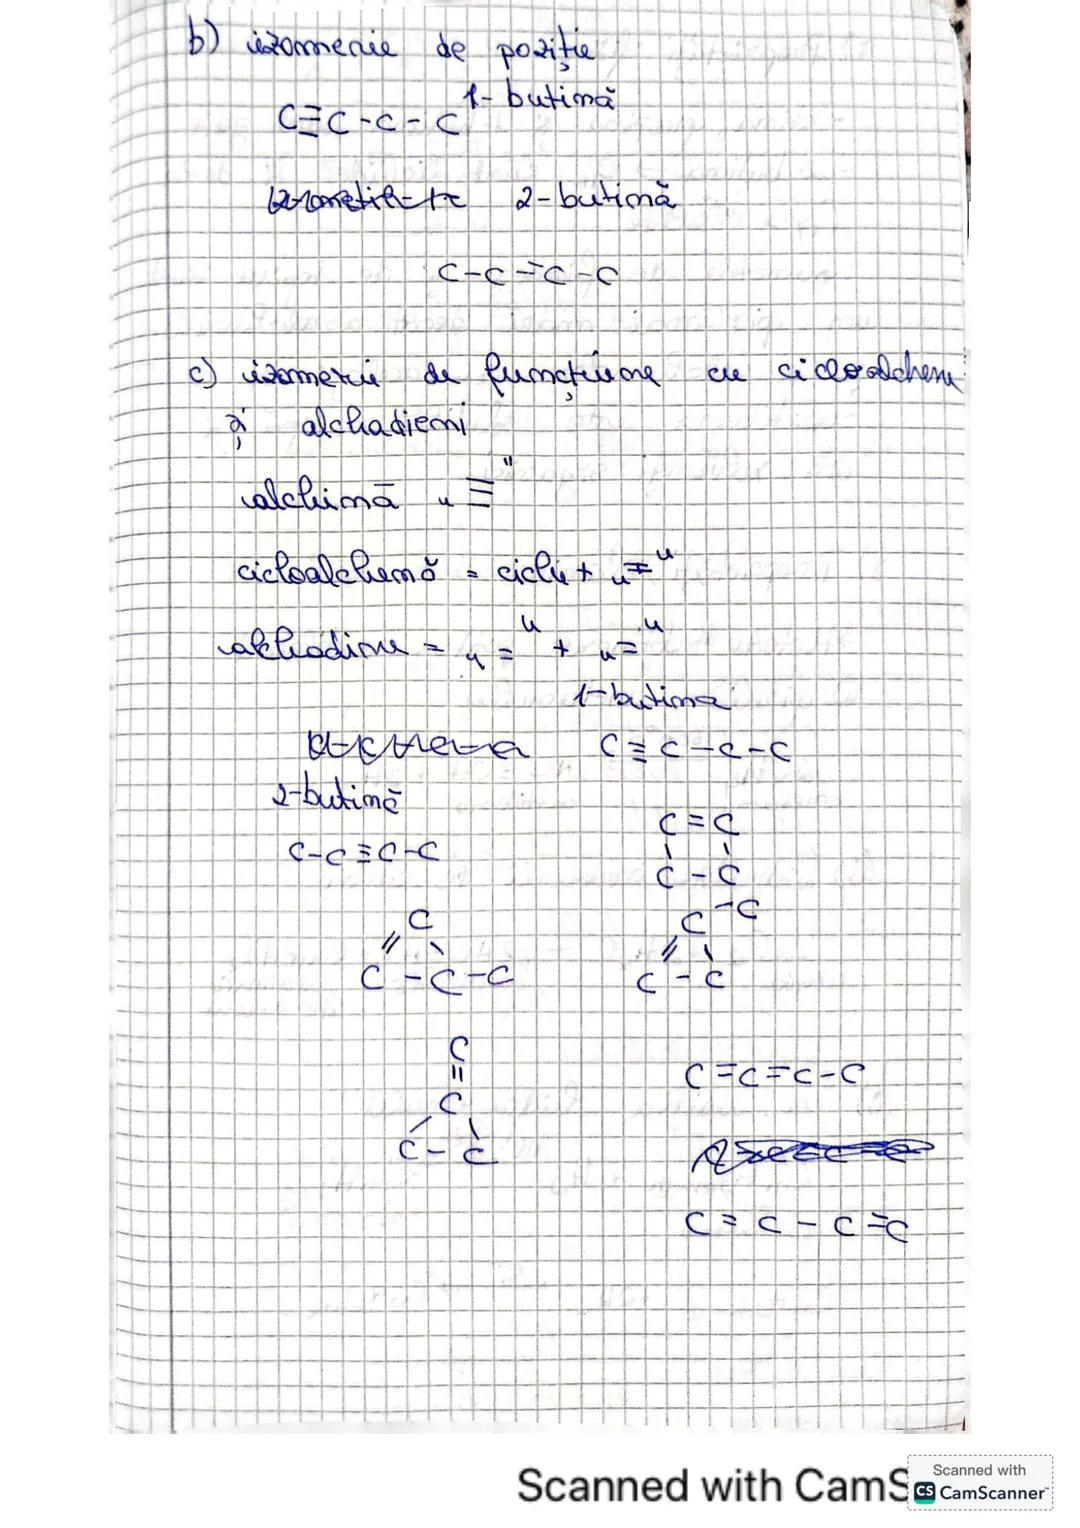 b) izomerie de poziție
1-butină
C≡C-C-C
2-butină
C-C≡C-C
c) izomerii de funcțiune cu cicloalchene
și alchadieni
alchină "≡"
cicloalchenă = ciclu + "="
alchadiene = "=" + "="
1-butina
C≡C-C-C
2-butină
C-C≡C-C
C=C
C-C
C
C-C-C
C-C
C-C
C
C
C-C
C=C=C-C
C=C-C=C
Scanned with CamS
Scanned with
CS CamScanner